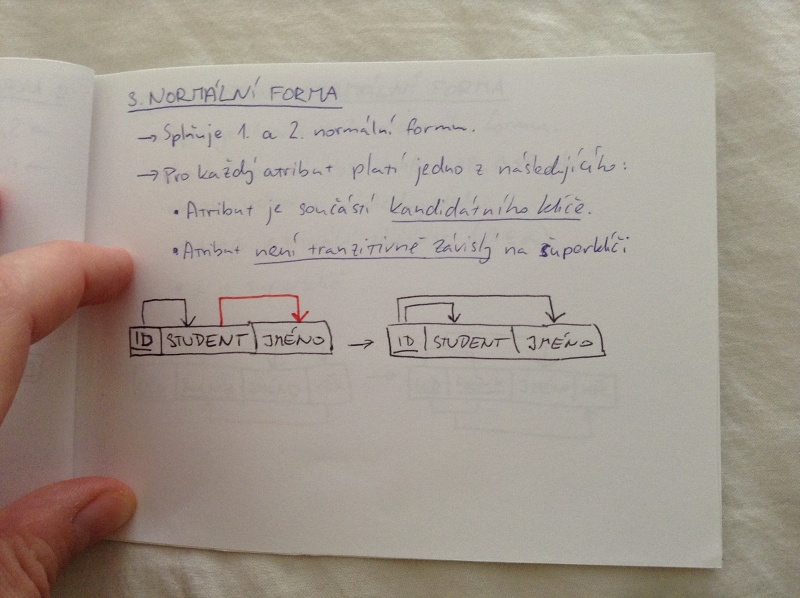 3. NORMÁLNÍ FORMA
→ Splňuje 1. a 2. normální formu.
→ Pro každý atribut platí jedno z následujícího:
• Atribut je součástí kandidátního klíče.
• Atribut není tranzitivně závislý na superklíči
ID STUDENT JMÉNO → ID STUDENT JMÉNO